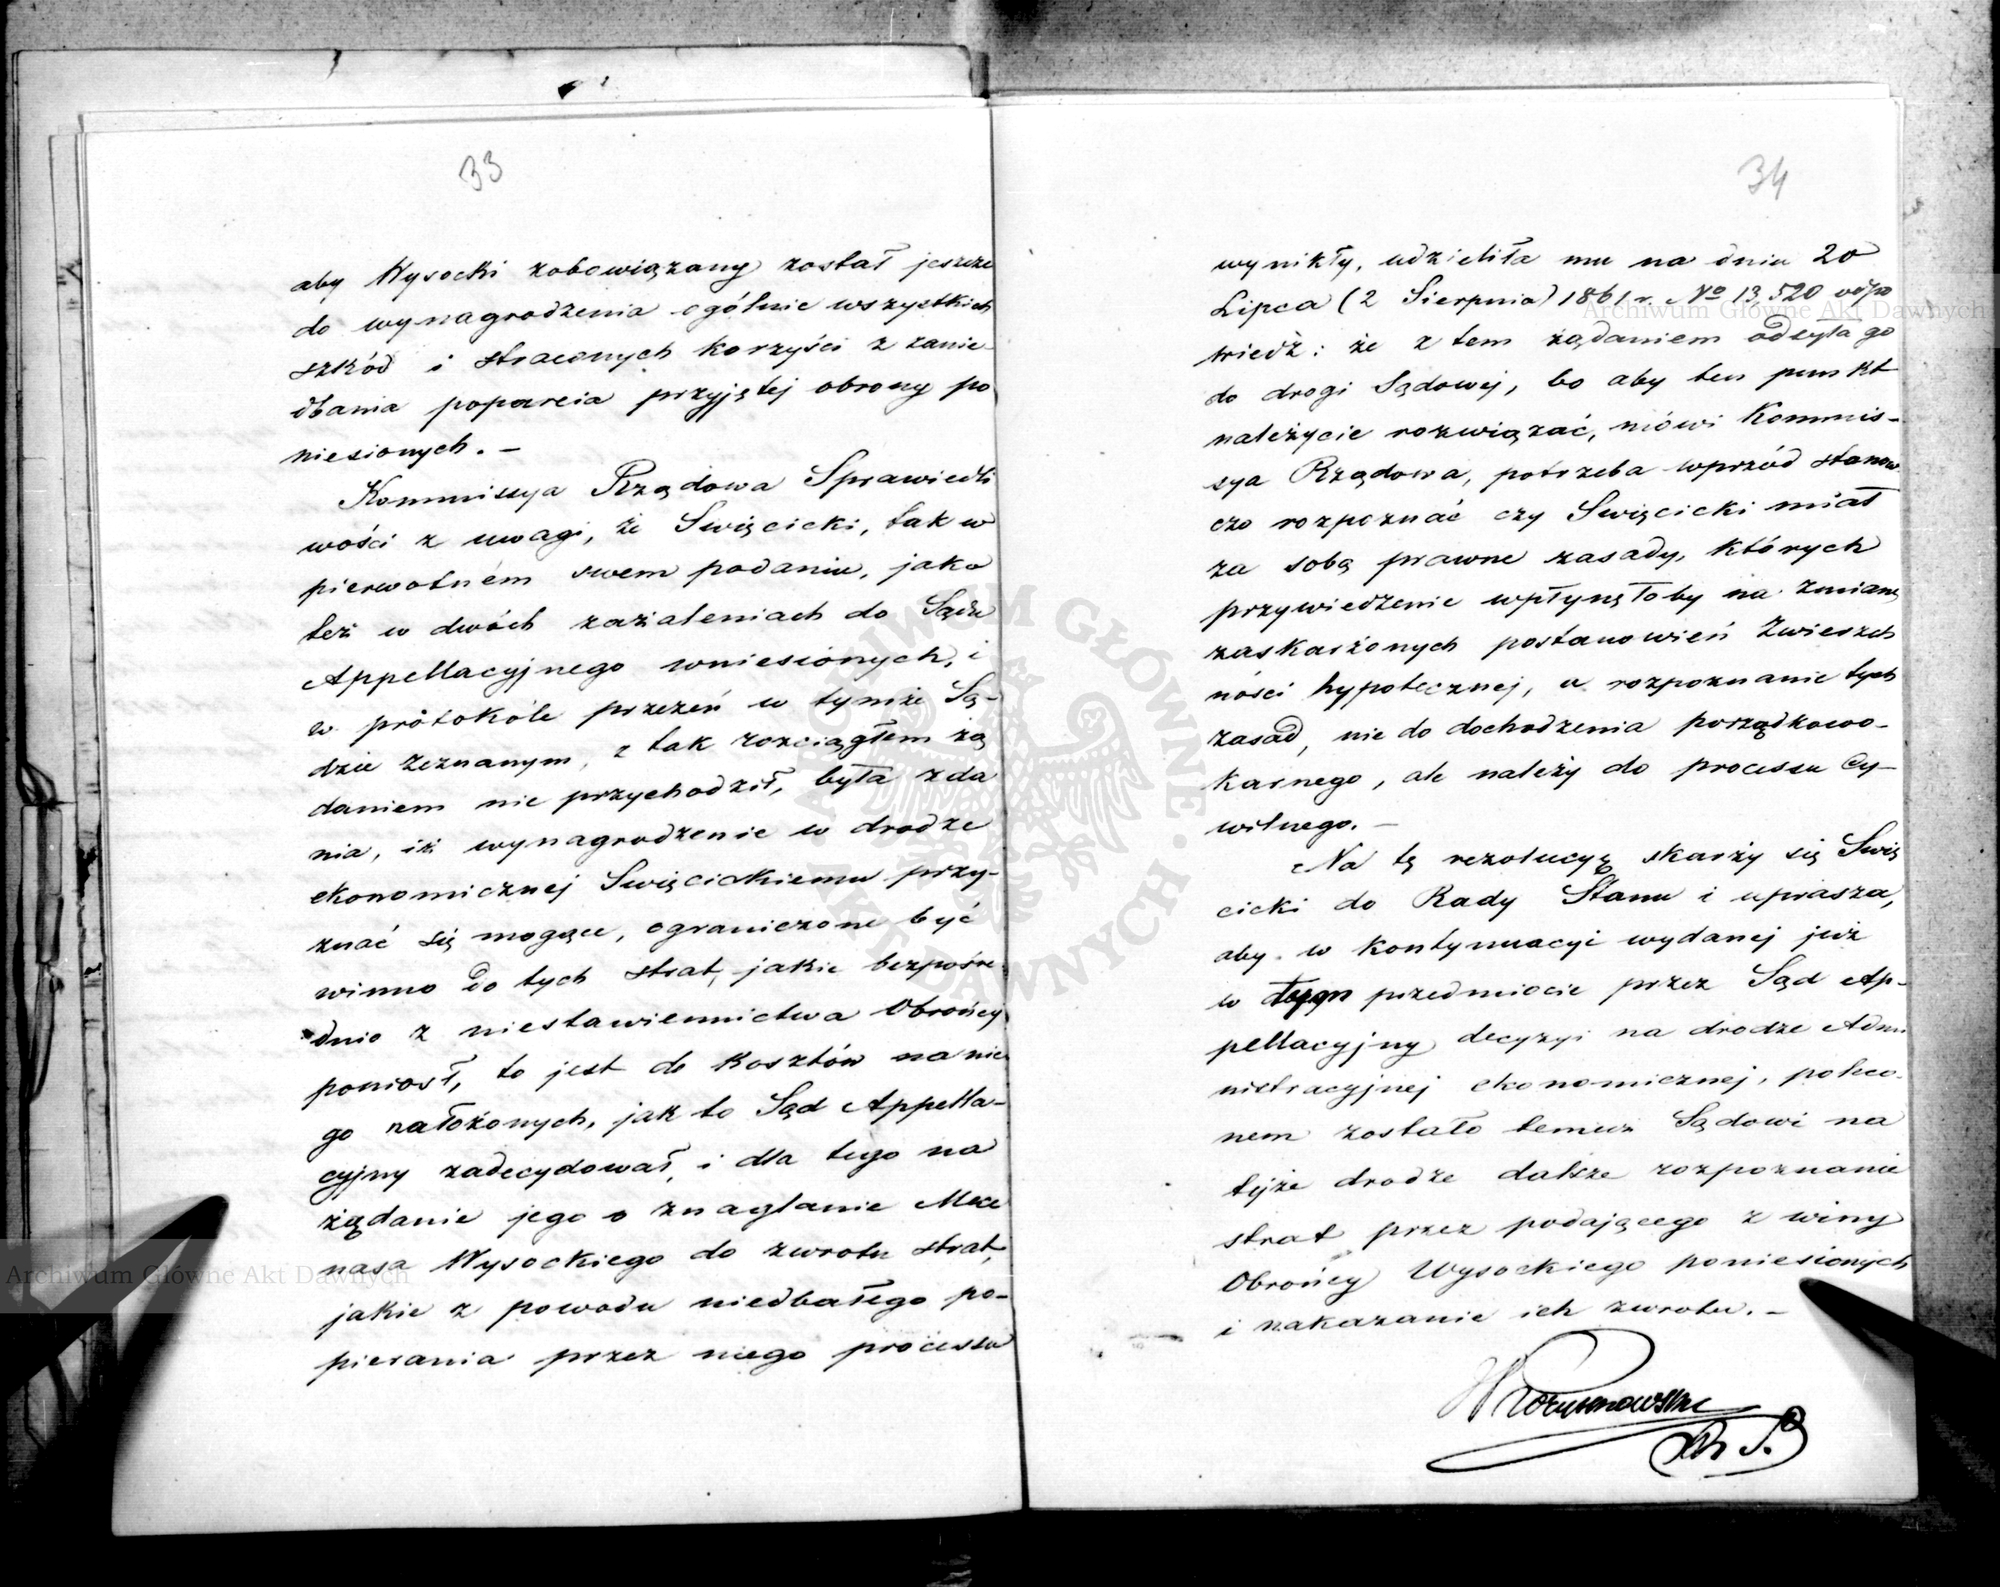 33
aby Wysocki zobowiązany został jeszcze
do wynagrodzenia ogólnie wszystkich
szkód i straconych korzyści z zanie-
dbania poparcia przyjętej obrony po
niesionych. –
Kommissya Rządowa Sprawiedli
wości z uwagi, że Swięcicki, tak w
pierwotném swem podaniu, jako
też w dwóch zażaleniach do Sądu
Appellacyjnego wniesionych, i
w protokóle przezeń w tymże Są-
dzie zeznanym, z tak rozciągłem żą
daniem nie przychodził, była zda
nia, iż wynagrodzenie w drodze
ekonomicznej Swięcickiemu przy-
znać się mogące, ograniczone być
winno do tych strat, jakie bezpośre-
dnio z niestawiennictwa Obrońcy
poniosł, to jest do kosztów na nie
go nałożonych, jak to Sąd Appella-
cyjny zadecydował, i dla tego na
żądanie jego o znaglanie Mece
nasa Wysockiego do zwrotu strat,
jakie z powodu niedbałego po-
pierania przez niego processu
34
wynikły, udzieliła mu na dniu 20
Lipca (2 Sierpnia) 1861 r. No 13,520 odpo
wiedź: że z tem żądaniem odsyła go
do drogi Sądowej, bo aby ten punkt
należycie rozwiązać, mówi Kommis-
sya Rządowa, potrzeba wprzód stanow
czo rozpoznać czy Swięcicki miał
za sobą prawne zasady, których
przywiedzenie wpłynęłoby na zmianę
zaskarżonych postanowień Zwierzch
ności hypotecznej, a rozpoznanie tych
zasad, nie do dochodzenia porządkowo-
karnego, ale należy do processu Cy-
wilnego. –
Na tę rezolucyę skarży się Swię
cicki do Rady Stanu i uprasza,
aby w kontynuacyi wydanej już
w tym przedmiocie przez Sąd Ap-
pellacyjny decyzyi na drodze Admi
nistracyjnej ekonomicznej, poleco-
nem zostało temuż Sądowi na
tejże drodze dalsze rozpoznanie
strat przez podającego z winy
Obrońcy Wysockiego poniesionych
i nakazanie ich zwrotu. –
Archiwum Główne Akt Dawnych
Archiwum Główne Akt Dawnych
ARCHIWUM GŁÓWNE · AKT DAWNYCH ·